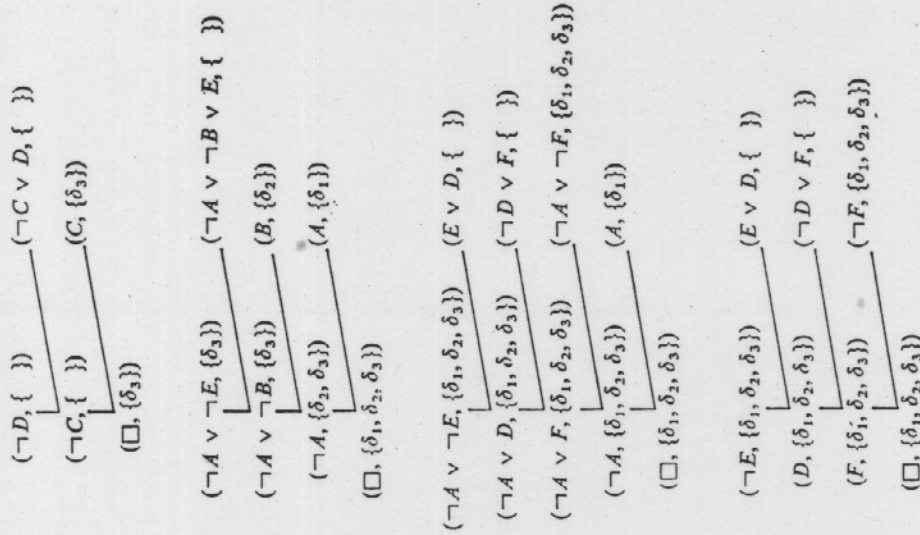 (¬D, { }) (¬C ∨ D, { })
(¬C, { }) (C, {δ₃})
(□, {δ₃})
(¬A ∨ ¬E, {δ₃}) (¬A ∨ ¬B ∨ E, { })
(¬A ∨ ¬B, {δ₃}) (B, {δ₂})
(¬A, {δ₂, δ₃}) (A, {δ₁})
(□, {δ₁, δ₂, δ₃})
(¬A ∨ ¬E, {δ₁, δ₂, δ₃}) (E ∨ D, { })
(¬A ∨ D, {δ₁, δ₂, δ₃}) (¬D ∨ F, { })
(¬A ∨ F, {δ₁, δ₂, δ₃}) (¬A ∨ ¬F, {δ₁, δ₂, δ₃})
(¬A, {δ₁, δ₂, δ₃}) (A, {δ₁})
(□, {δ₁, δ₂, δ₃})
(¬E, {δ₁, δ₂, δ₃}) (E ∨ D, { })
(D, {δ₁, δ₂, δ₃}) (¬D ∨ F, { })
(F, {δ₁, δ₂, δ₃}) (¬F, {δ₁, δ₂, δ₃})
(□, {δ₁, δ₂, δ₃})